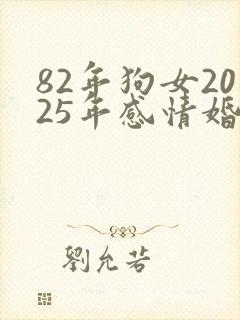 82年狗女20
25年感情婚
劉允若